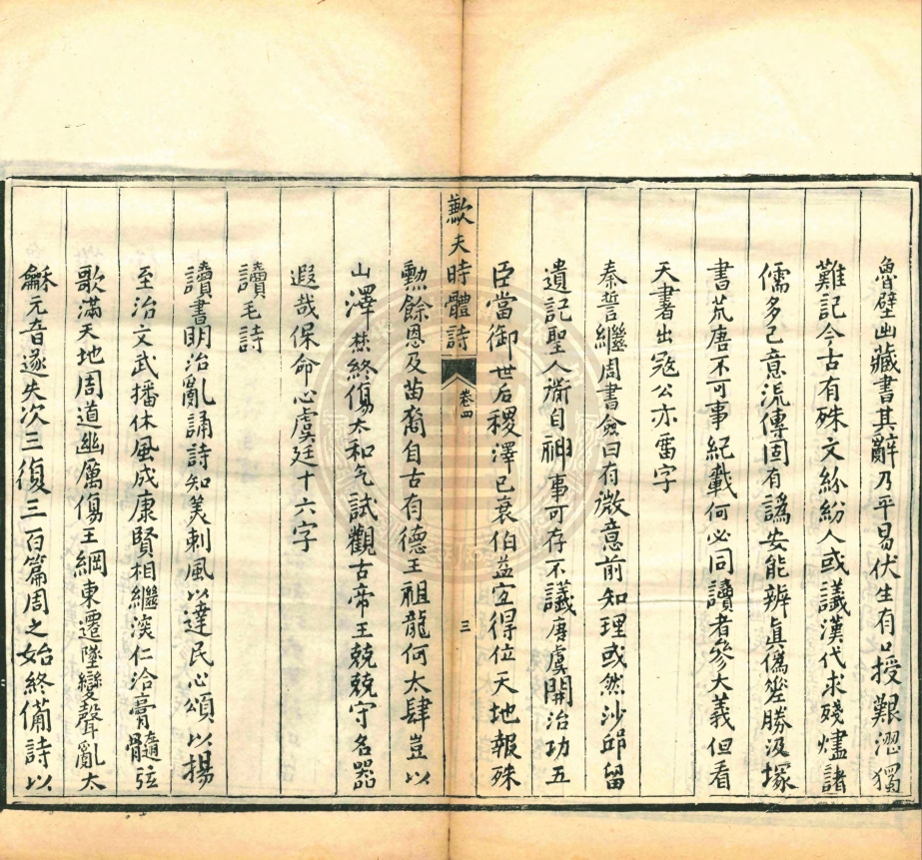 魯壁幽藏書其辭乃平易伏生有口授艱澀獨
難記今古有殊文紛紛人或議漢代求殘燼諸
儒多己意流傳固有譌安能辨眞僞差勝汲塚
書荒唐不可事紀載何必同讀者參大義但看
天書出寇公亦雷字
秦誓繼周書僉曰有微意前知理或然沙邱留
遺記聖人衜自神事可存不議唐虞開治功五
臣當御世后稷澤已衰伯益宜得位天地報殊
歗夫時體詩
卷四
三
勲餘恩及苗裔自古有德王祖龍何太肆豈以
山澤焚終傷太和气試觀古帝王兢兢守名器
遐哉保命心虞廷十六字
讀毛詩
讀書明治亂誦詩知美刺風以達民心頌以揚
至治文武播休風成康賢相繼浹仁洽膏髓弦
歌滿天地周道幽厲傷王綱東遷墜變聲亂太
龢元音遂失次三復三百篇周之始終備詩以